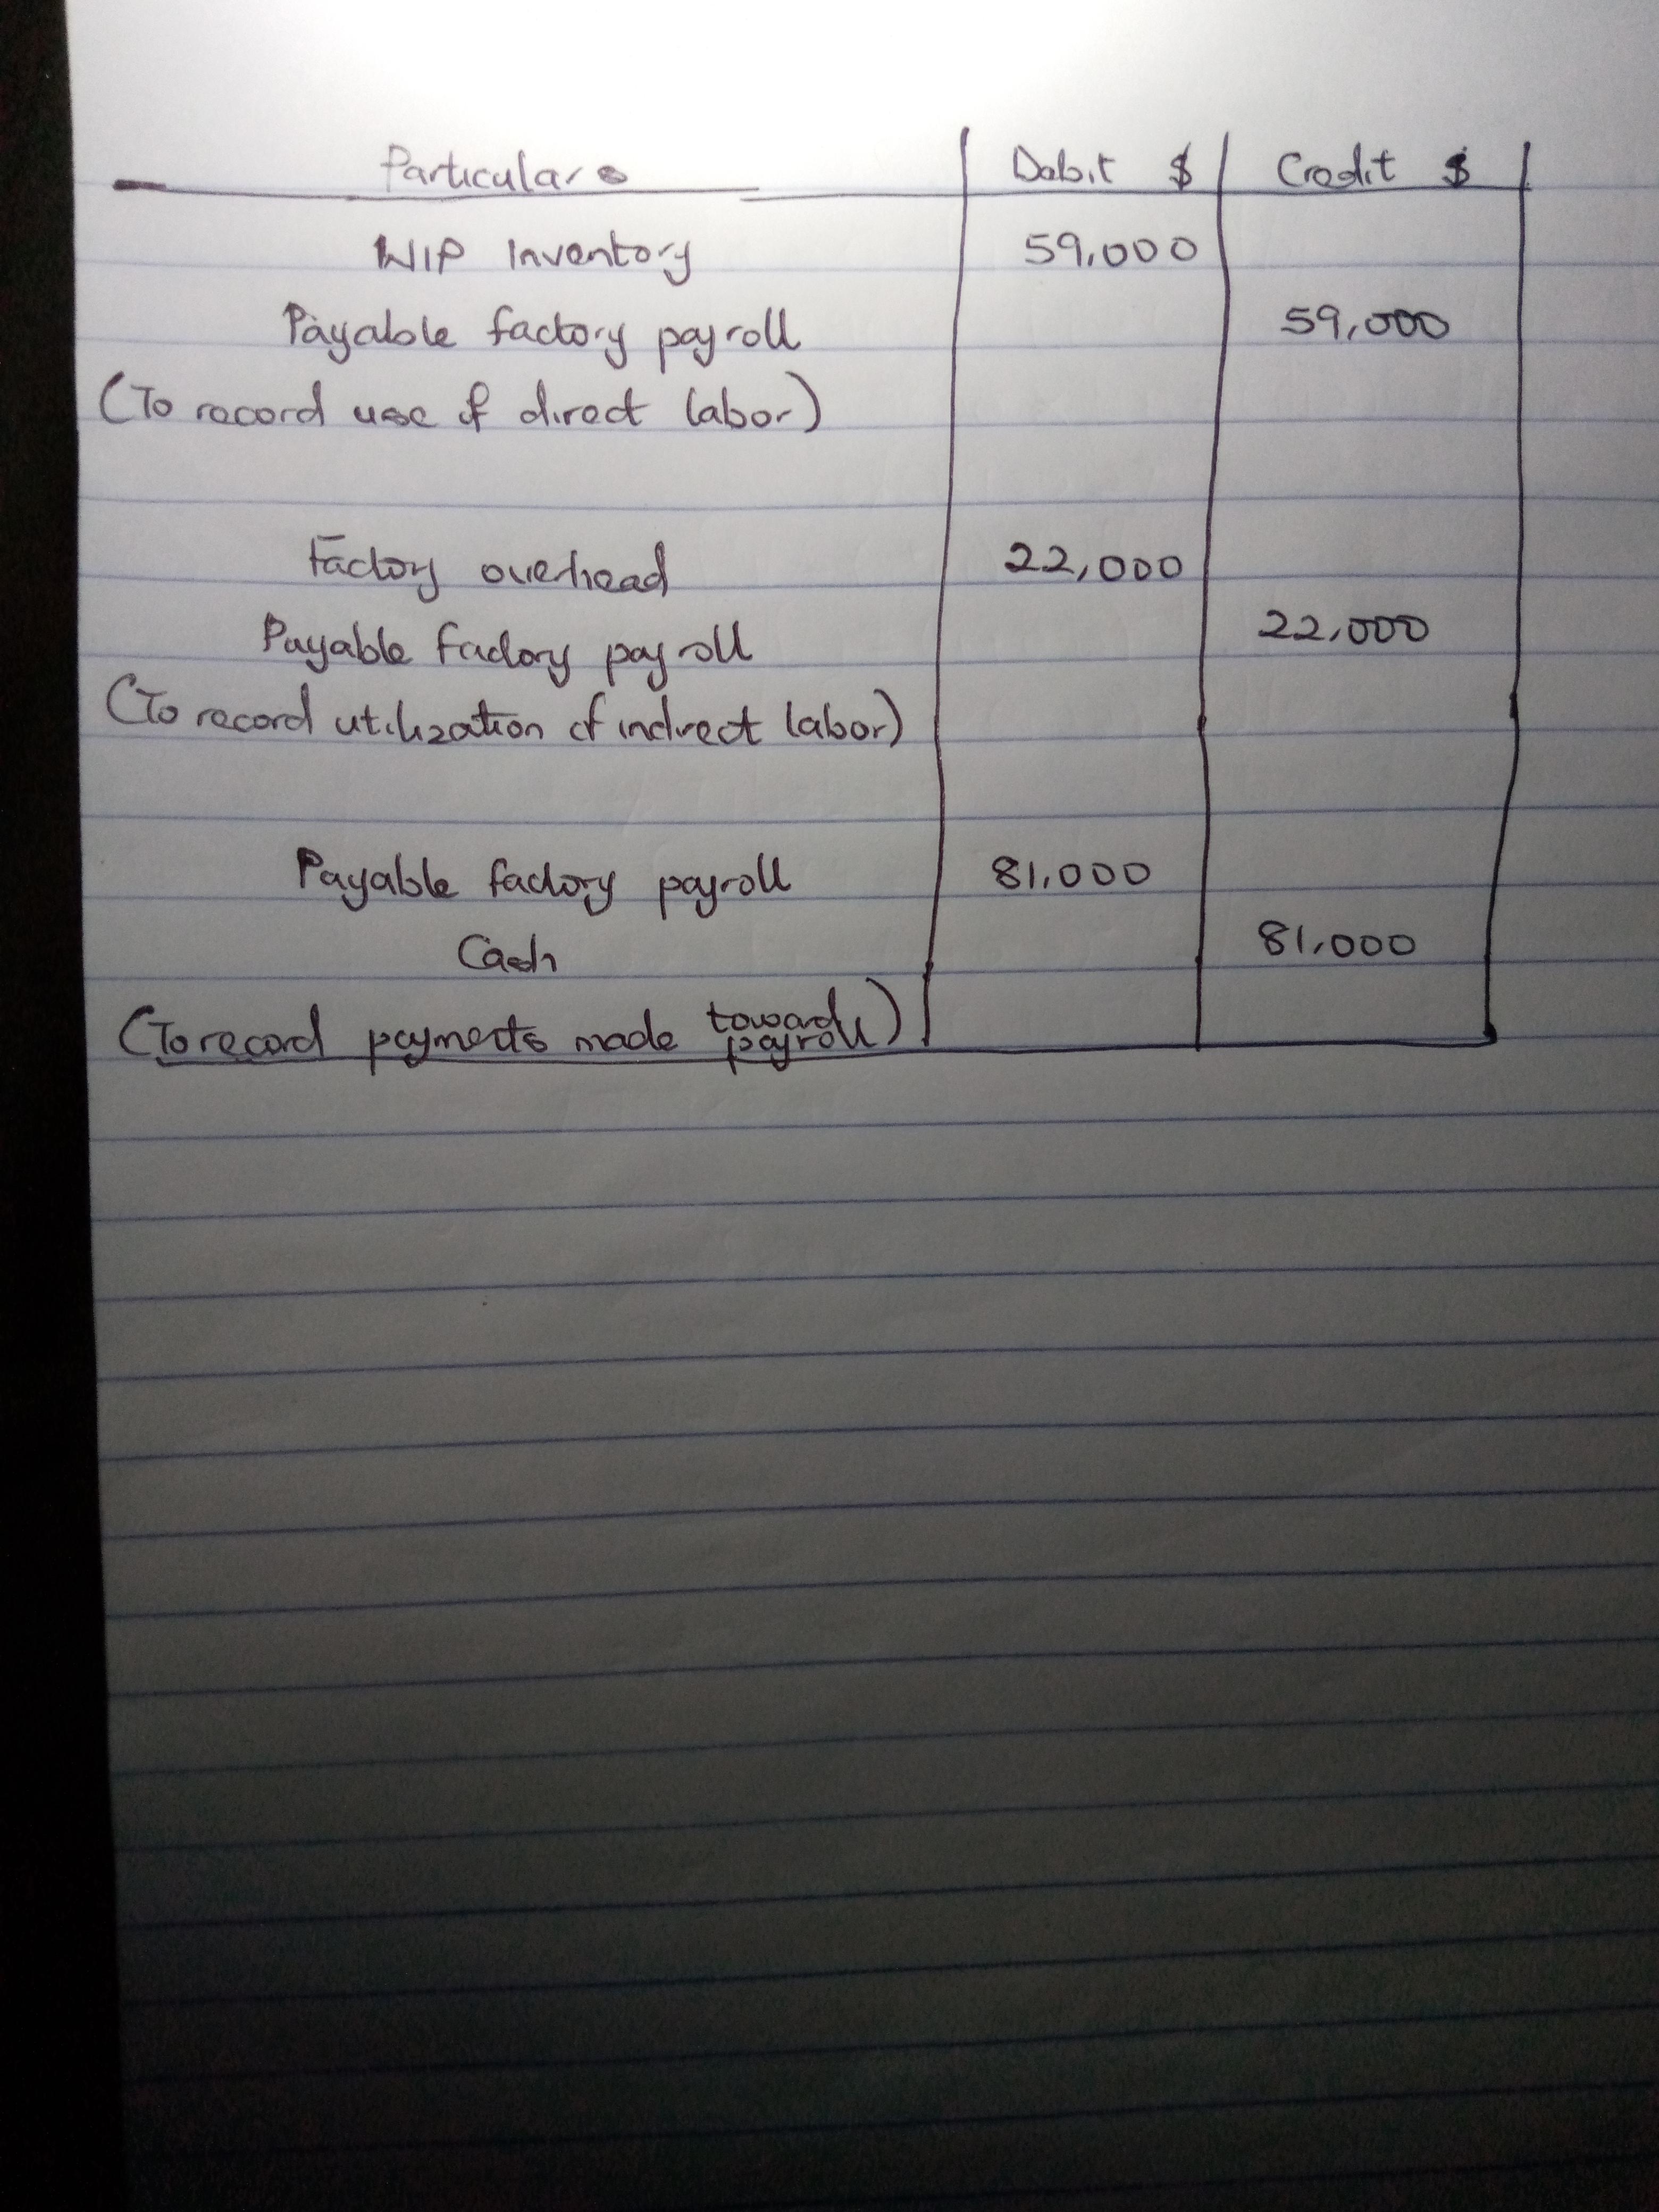 Particulars Debit $ Credit $
WIP Inventory 59,000
Payable factory payroll 59,000
(To record use of direct labor)
Factory overhead 22,000
Payable factory payroll 22,000
(To record utilization of indirect labor)
Payable factory payroll 81,000
Cash 81,000
(To record payments made toward payroll)